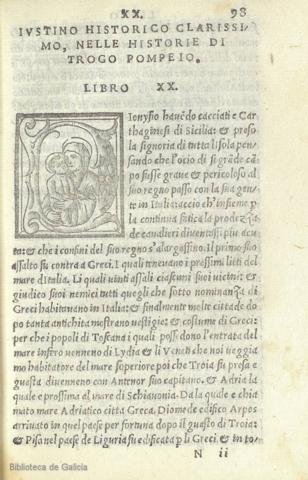 XX. 98
IVSTINO HISTORICO CLARISSI-
MO, NELLE HISTORIE DI
TROGO POMPEIO.
LIBRO XX.
Ionysio havẽdo cacciati e Car
thaginesi di Sicilia: & preso
la signoria di tutta lisola pen-
sando che l'ocio di si grãde cã
po fusse grave & pericoloso al
suo regno passo con la sua gen-
te in Italia: accio ch'insieme p
la continua fatica la prodezza
de cavalieri diventassi piu acu
ta: & che i confini del suo regno s'alargassino. il primo suo
assalto fu contra a Greci. I quali tenevano i prossimi liti del
mare d'Italia. Li quali vinti assali ciascuni suoi vicini: &
giudico suoi nemici tutti quegli che sotto nominanza di
Greci habitavano in Italia: & finalmente molte citade do
po tanta antichita mostrano vestigie: & costume di Greci:
per che i popoli di Toscana i quali possedono l'entrata del
mare infero vennono di Lydia & li Veneti che noi veggia
mo habitatore del mare superiore poi che Troia fu presa e
guasta divennono con Antenor suo capitano. & Adria la
quale e prossima al mare di Schiavonia. Da la quale e chia
mato mare Adriatico citta Greca. Diomede edifico Arpos
arrivato in quel paese per fortuna dopo il guasto di Troia:
& Pisa nel paese de Liguria fu edificata p li Greci. & in to-
N ii
Biblioteca de Galicia